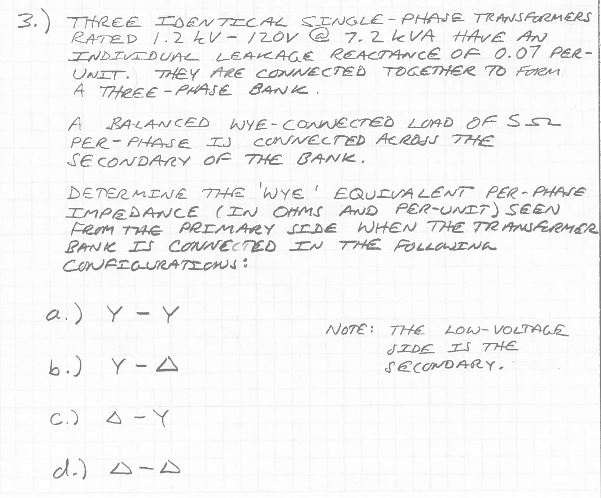 3.) THREE IDENTICAL SINGLE-PHASE TRANSFORMERS
RATED 1.2 kV - 120V @ 7.2 kVA HAVE AN
INDIVIDUAL LEAKAGE REACTANCE OF 0.07 PER-
UNIT. THEY ARE CONNECTED TOGETHER TO FORM
A THREE-PHASE BANK.
A BALANCED WYE-CONNECTED LOAD OF 5Ω
PER-PHASE IS CONNECTED ACROSS THE
SECONDARY OF THE BANK.
DETERMINE THE 'WYE' EQUIVALENT PER-PHASE
IMPEDANCE (IN OHMS AND PER-UNIT) SEEN
FROM THE PRIMARY SIDE WHEN THE TRANSFORMER
BANK IS CONNECTED IN THE FOLLOWING
CONFIGURATIONS:
a.) Y - Y
b.) Y - Δ
c.) Δ - Y
d.) Δ - Δ
NOTE: THE LOW-VOLTAGE
SIDE IS THE
SECONDARY.